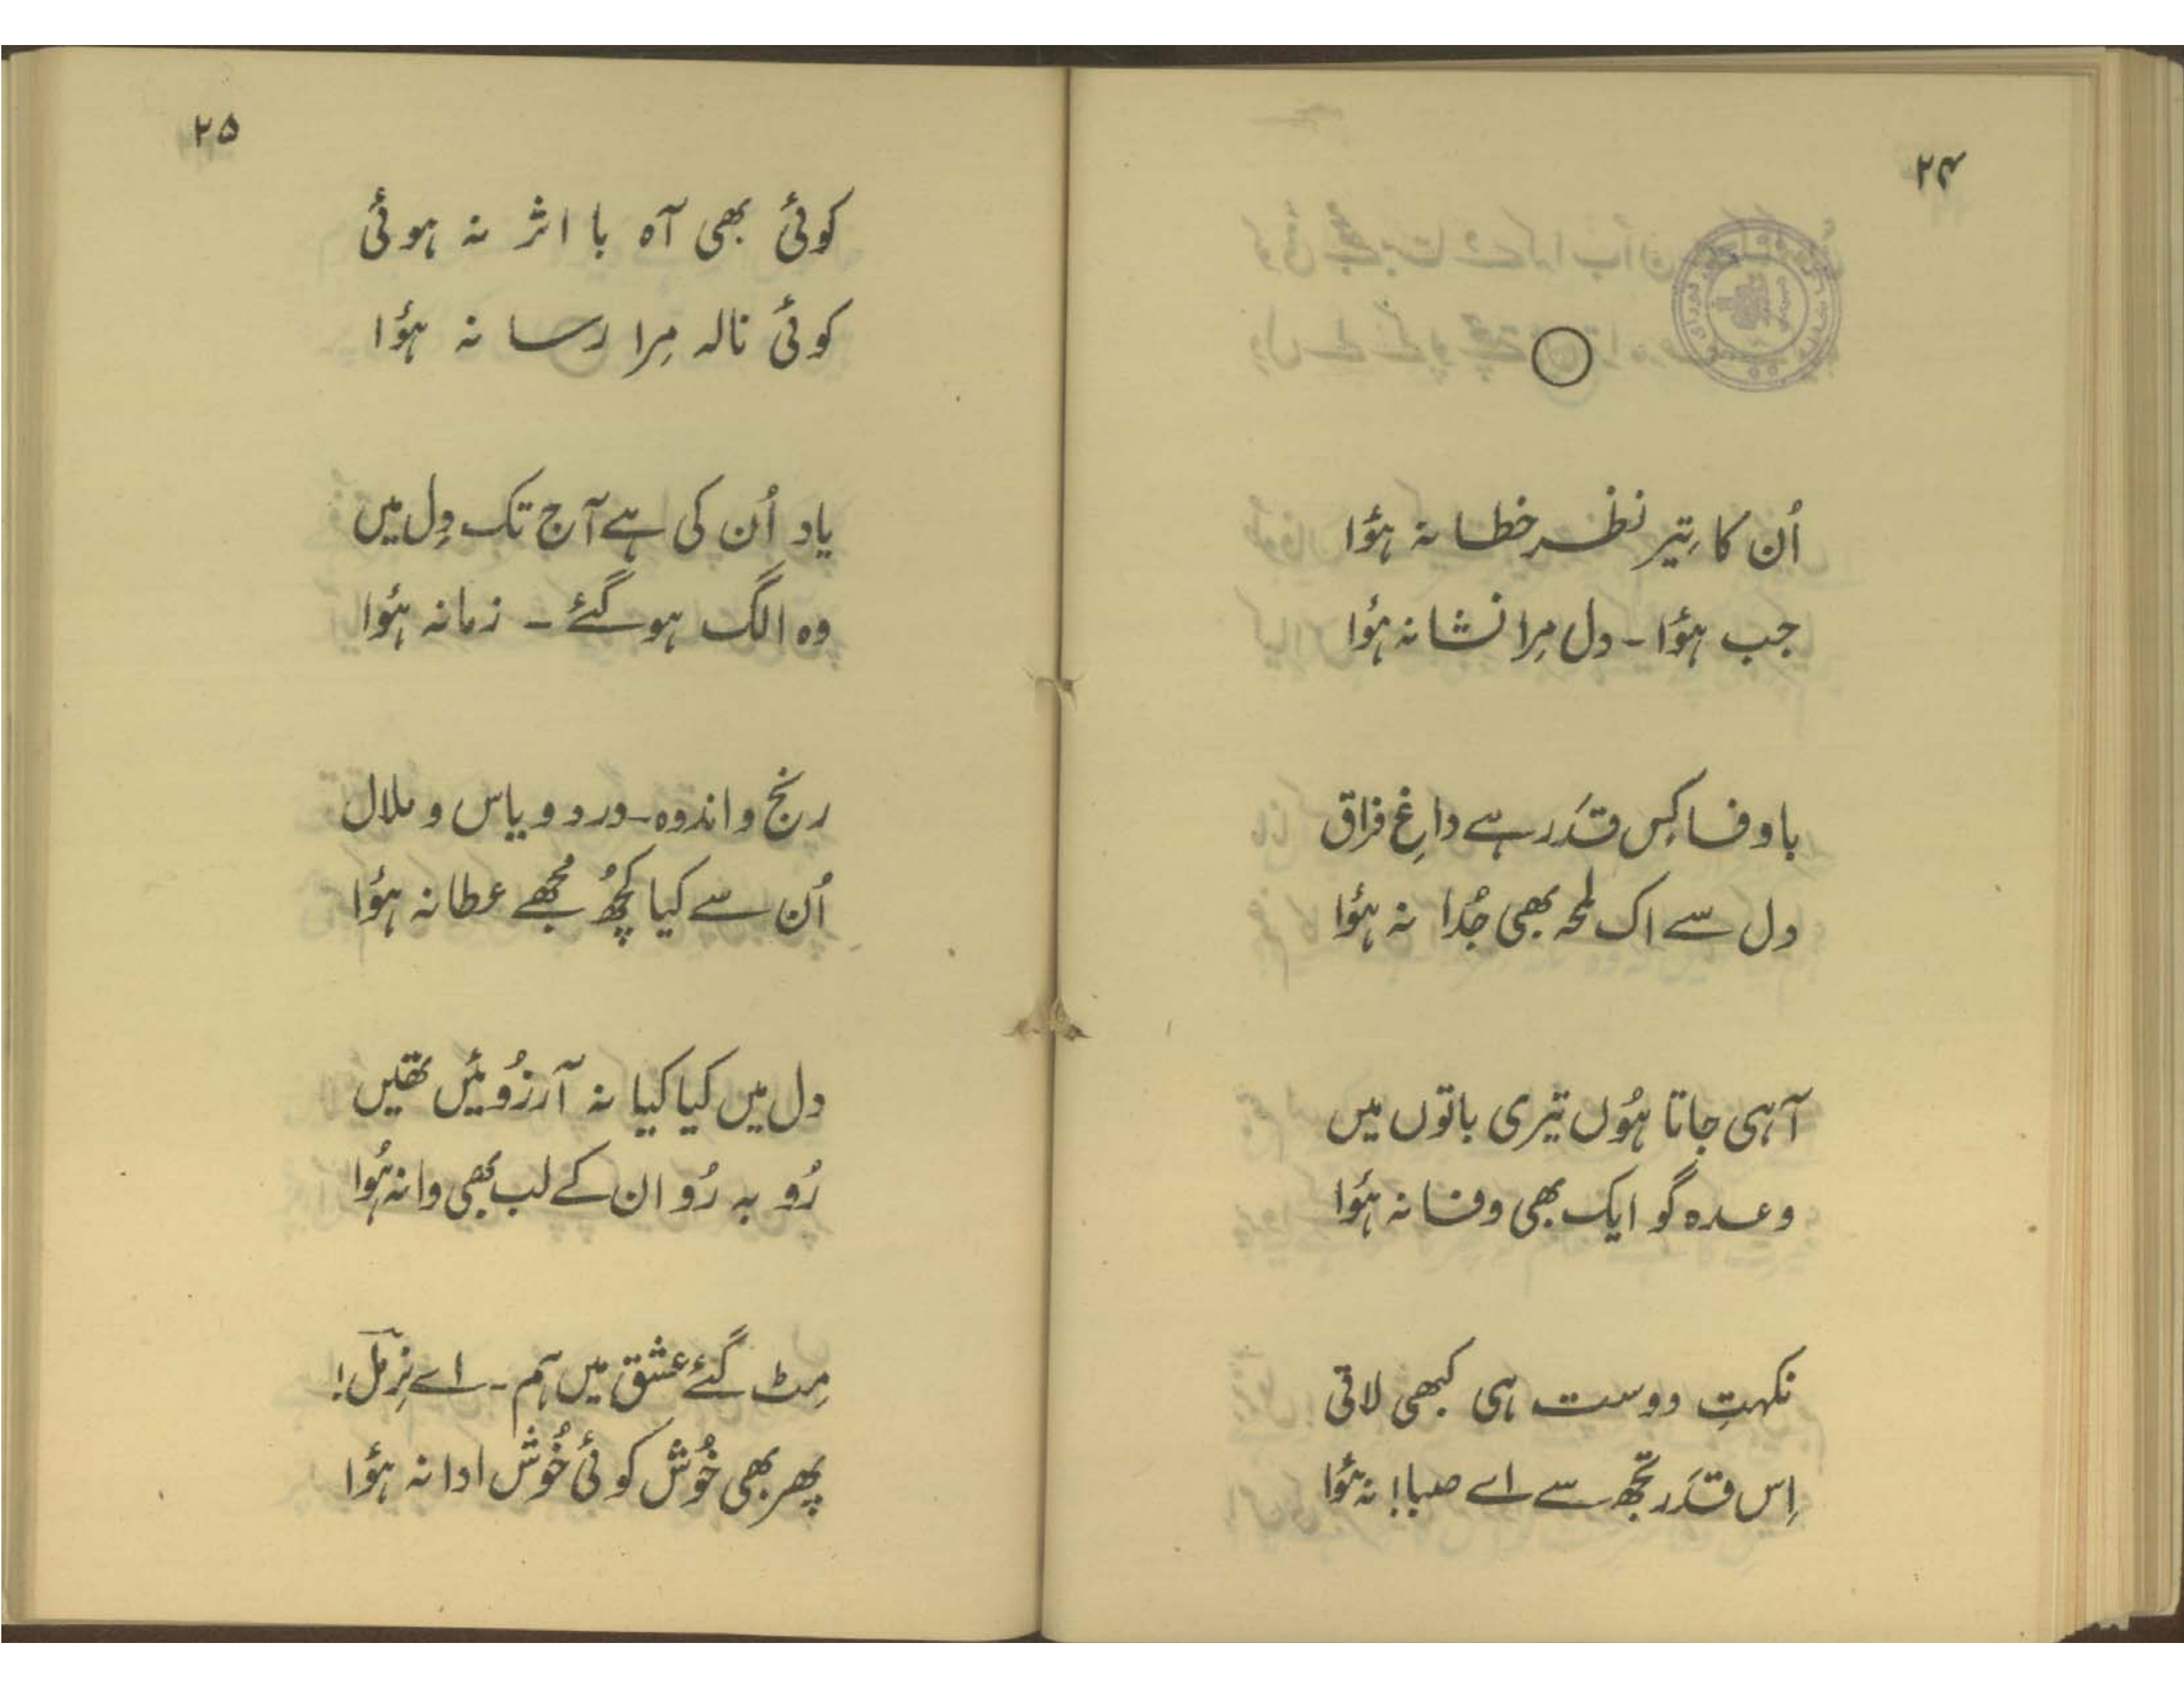 ۲۴
اُن کا تِیرِ نظر خطا نہ ہؤا
جب ہؤا ـ دل مِرا نشانہ ہؤا
باوفا کِس قدَر ہے داغِ فراق
دل سے اک لمحہ بھی جُدا نہ ہؤا
آہی جاتا ہُوں تیری باتوں میں
وعدہ گو ایک بھی وفا نہ ہؤا
نکہتِ دوست ہی کبھی لاتی
اِس قدَر تجھ سے اے صبا! نہ ہؤا
۲۵
کوئی بھی آہ با اثر نہ ہوئی
کوئی نالہ مِرا رسا نہ ہؤا
یاد اُن کی ہے آج تک دِل میں
وہ الگ ہو گئے ـ زمانہ ہؤا
رنج و اندوہ ـ درد و یاس و ملال
اُن سے کیا کچُھ مُجھے عطا نہ ہؤا
دل میں کیا کیا نہ آرزُوئیں تھیں
رُو بہ رُو ان کے لب بھی وا نہ ہُوا
مِٹ گئے عشق میں ہم ـ اے نِرملؔ!
پھر بھی خُوش کوئی خُوش ادا نہ ہؤا